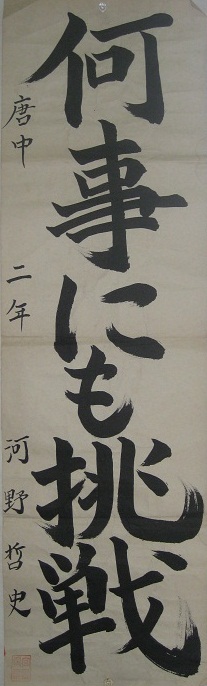 何事にも挑戦
唐中 二年 河野哲史